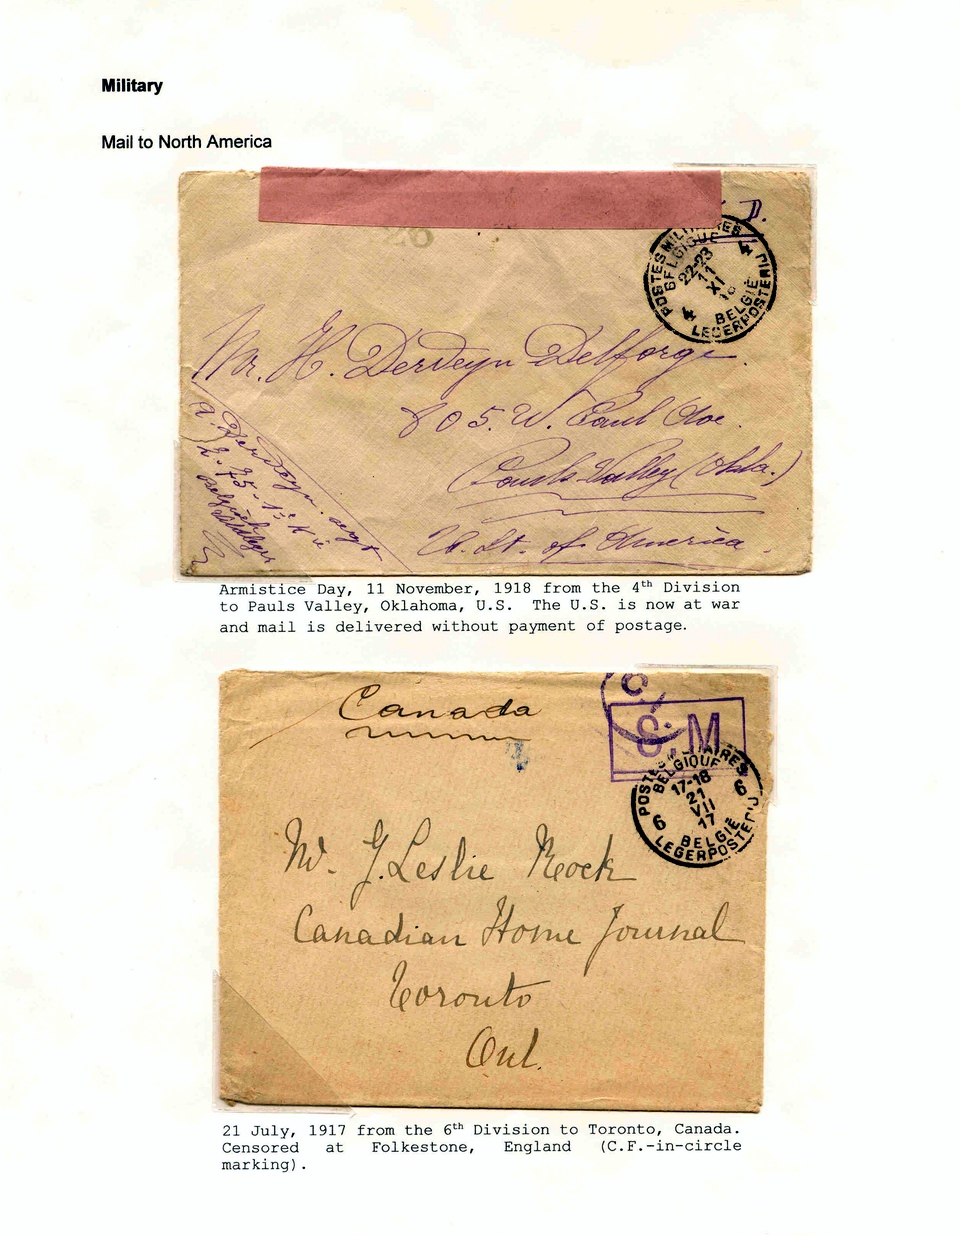 Military
Mail to North America
D.
POSTES MILITAIRES
BELGIQUE
4 22-23 4
11
XI
18
BELGIË
LEGERPOSTERIJ
Mr. H. Derdeyn Delforge.
805. W. Paul Ave.
Pauls Valley (Okla.)
U. St. of America.
A Derdeyn. sergt
Armistice Day, 11 November, 1918 from the 4th Division
to Pauls Valley, Oklahoma, U.S. The U.S. is now at war
and mail is delivered without payment of postage.
Canada
C
S.M
POSTES MILITAIRES
BELGIQUE
17-18
6 21 6
VII
17
BELGIË
LEGERPOSTERIJ
Mr. J. Leslie
Canadian Home Journal
Toronto
Ont.
21 July, 1917 from the 6th Division to Toronto, Canada.
Censored at Folkestone, England (C.F.-in-circle
marking).